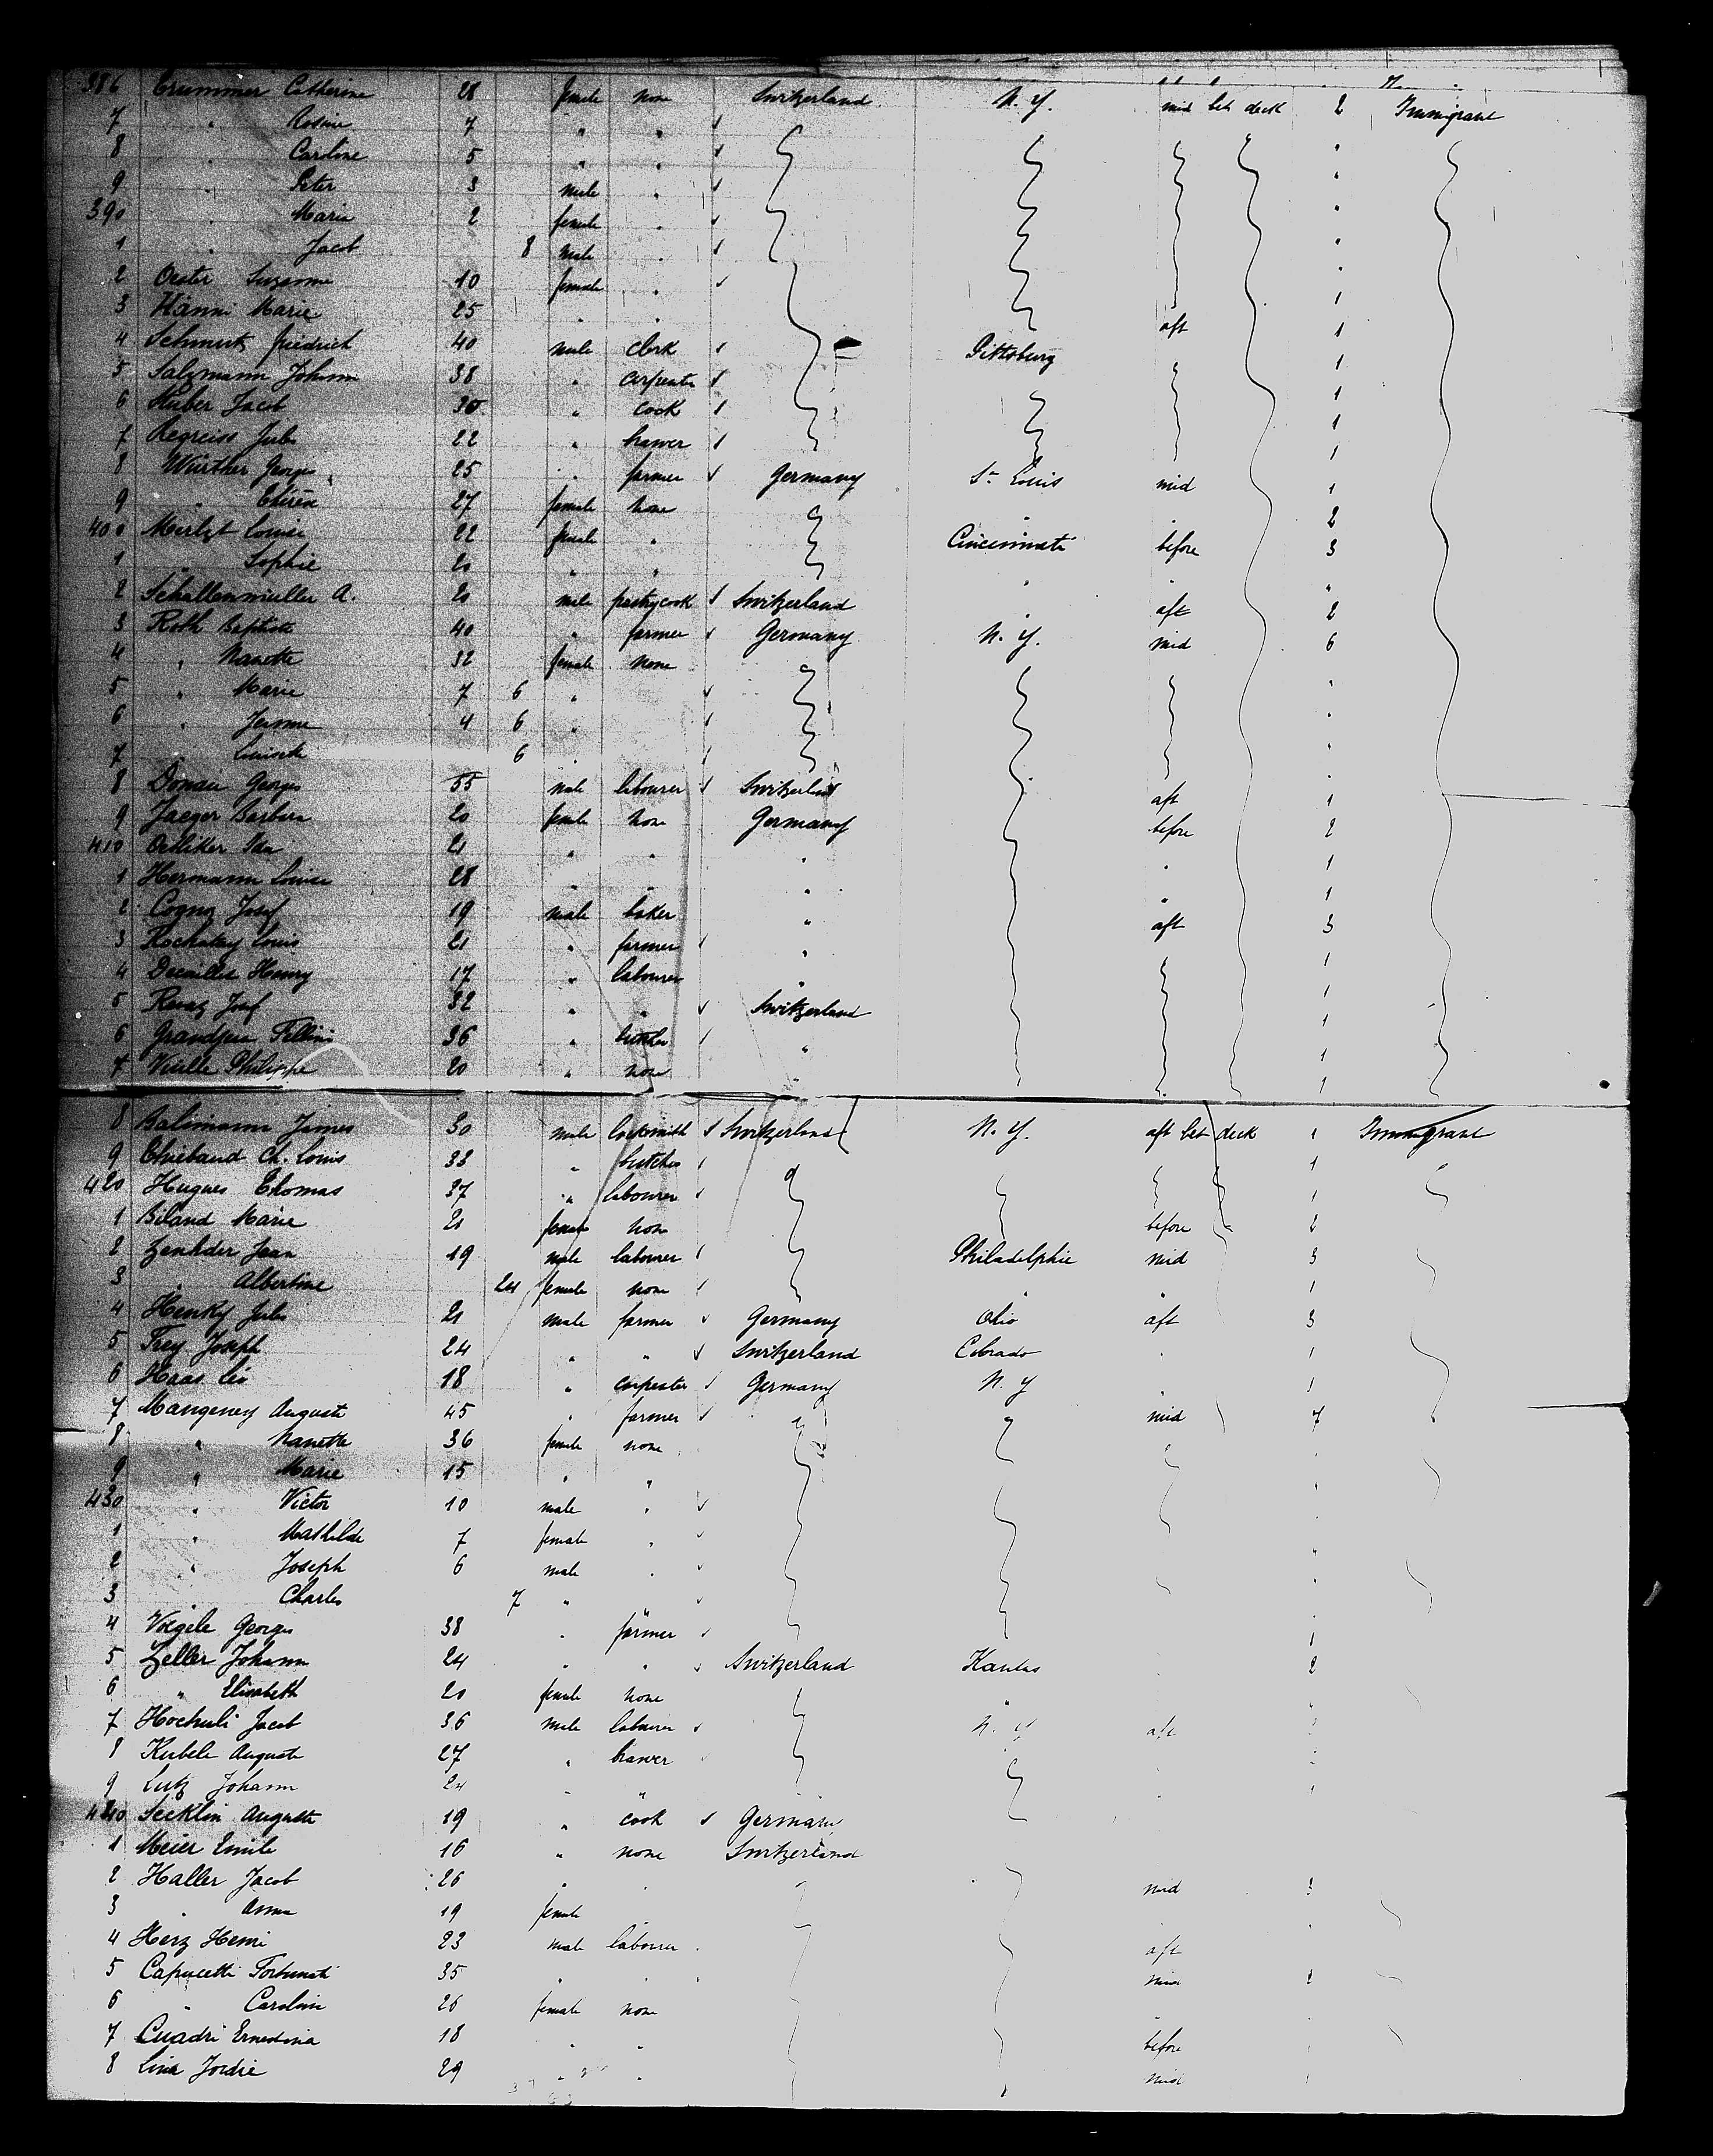 386 Crummer Catherine 28 female none Switzerland N. Y. mid bet deck 2 Immigrant
7 " Rosine 7 " "
8 " Caroline 5 " "
9 " Peter 3 male "
390 " Marie 2 female "
1 " Jacob 8 male "
2 Oester Suzanne 10 female " 1
3 Hänni Marie 25 " " aft 1
4 Schmutz Friedrich 40 male clerk Pittsburg 1
5 Salzmann Johann 38 " carpenter 1
6 Huber Jacob 30 " cook 1
7 Regreiss Jules 22 " brawer 1
8 Würther Georges 25 " farmer Germany St Louis mid 1
9 " 27 female none " 2
400 Louise 22 female " Cincinnati before 3
1 " Sophie 20 " " " "
2 Schallenmuller A. 20 male pastrycook Switzerland " aft 2
3 Roth Baptiste 40 " farmer Germany N. Y. mid 6
4 " Nanette 32 female none
5 " Marie 7 6 "
6 " Jeanne 4 6 "
7 " 6 "
8 Donau Georges 55 male labourer Switzerland aft 1
9 Jaeger Barbara 20 female none Germany before 2
410 Oelliker Ida 21 " " " " 1
1 Hermann Louise 28 " " " " 1
2 Josef 19 male baker " aft 3
3 Rochatay Louis 21 " farmer " 1
4 Decaillet Henry 17 " labourer " 1
5 Revaz Josef 32 " " Switzerland 1
6 Grandjean 36 " butcher " 1
7 Vuille Philippe 20 " none " 1
8 Balimann James 30 male locksmith Switzerland N. Y. aft bet deck 1 Immigrant
9 Thiebaud Ch. Louis 33 " butcher 1
420 Hugues Thomas 37 " labourer 1
1 Biland Marie 20 female none before 2
2 Jean 19 male labourer Philadelphie mid 3
3 " Albertine 24 female none " " 1
4 Henky Jules 21 male farmer Germany Ohio aft 3
5 Frey Joseph 24 " " Switzerland Colorado " 1
6 Haas Leo 18 " carpenter Germany N. Y " 1
7 Mangeney Auguste 45 " farmer mid 7
8 " Nanette 36 female none
9 " Marie 15 " "
430 " Victor 10 male "
1 " Mathilde 7 female "
2 " Joseph 6 male "
3 " Charles 7 " "
4 Voegele Georges 38 " farmer 1
5 Zeller Johann 24 " " Switzerland Kantas 2
6 " Elisabeth 20 female none "
7 Hochuli Jacob 36 male labourer N. Y aft
8 Kubele Auguste 27 " brawer
9 Lutz Johann 24 " "
440 Secklin Auguste 19 " cook Germany
1 Meier Emile 16 " none Switzerland
2 Haller Jacob 26 " " mid 3
3 " Anna 19 female
4 Herz Henri 23 male labourer aft
5 Capucetti Fortunati 35 " " mid 2
6 " Caroline 26 female none "
7 Cuadri Ernestina 18 " " before
8 Lina Jordie 29 " " mid